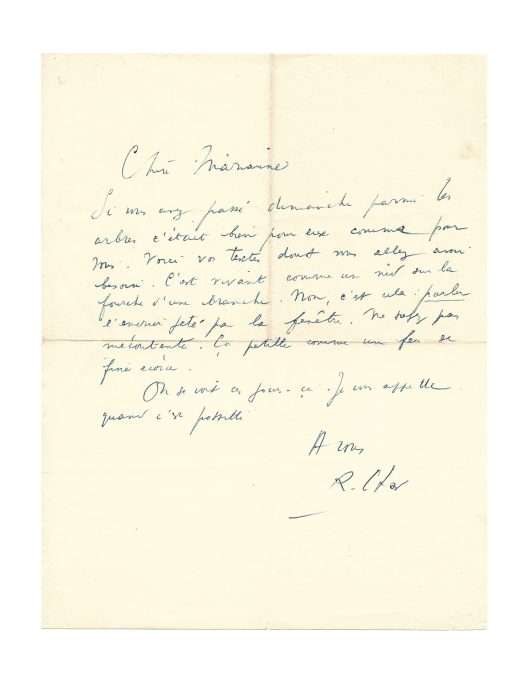 Chère Marianne
Si vous avez passé dimanche parmi les
arbres c'était bien pour eux comme pour
vous. Voici vos textes dont vous allez avoir
besoin. C'est vivant comme un nid sur la
fourche d'une branche. Non, c'est cela parler
l'encrier jeté par la fenêtre. Ne soyez pas
mécontente. Ça pétille comme un feu de
fine écorce.
On se voit ces jours-ci. Je vous appelle
quand c'est possible
A vous
R. Char